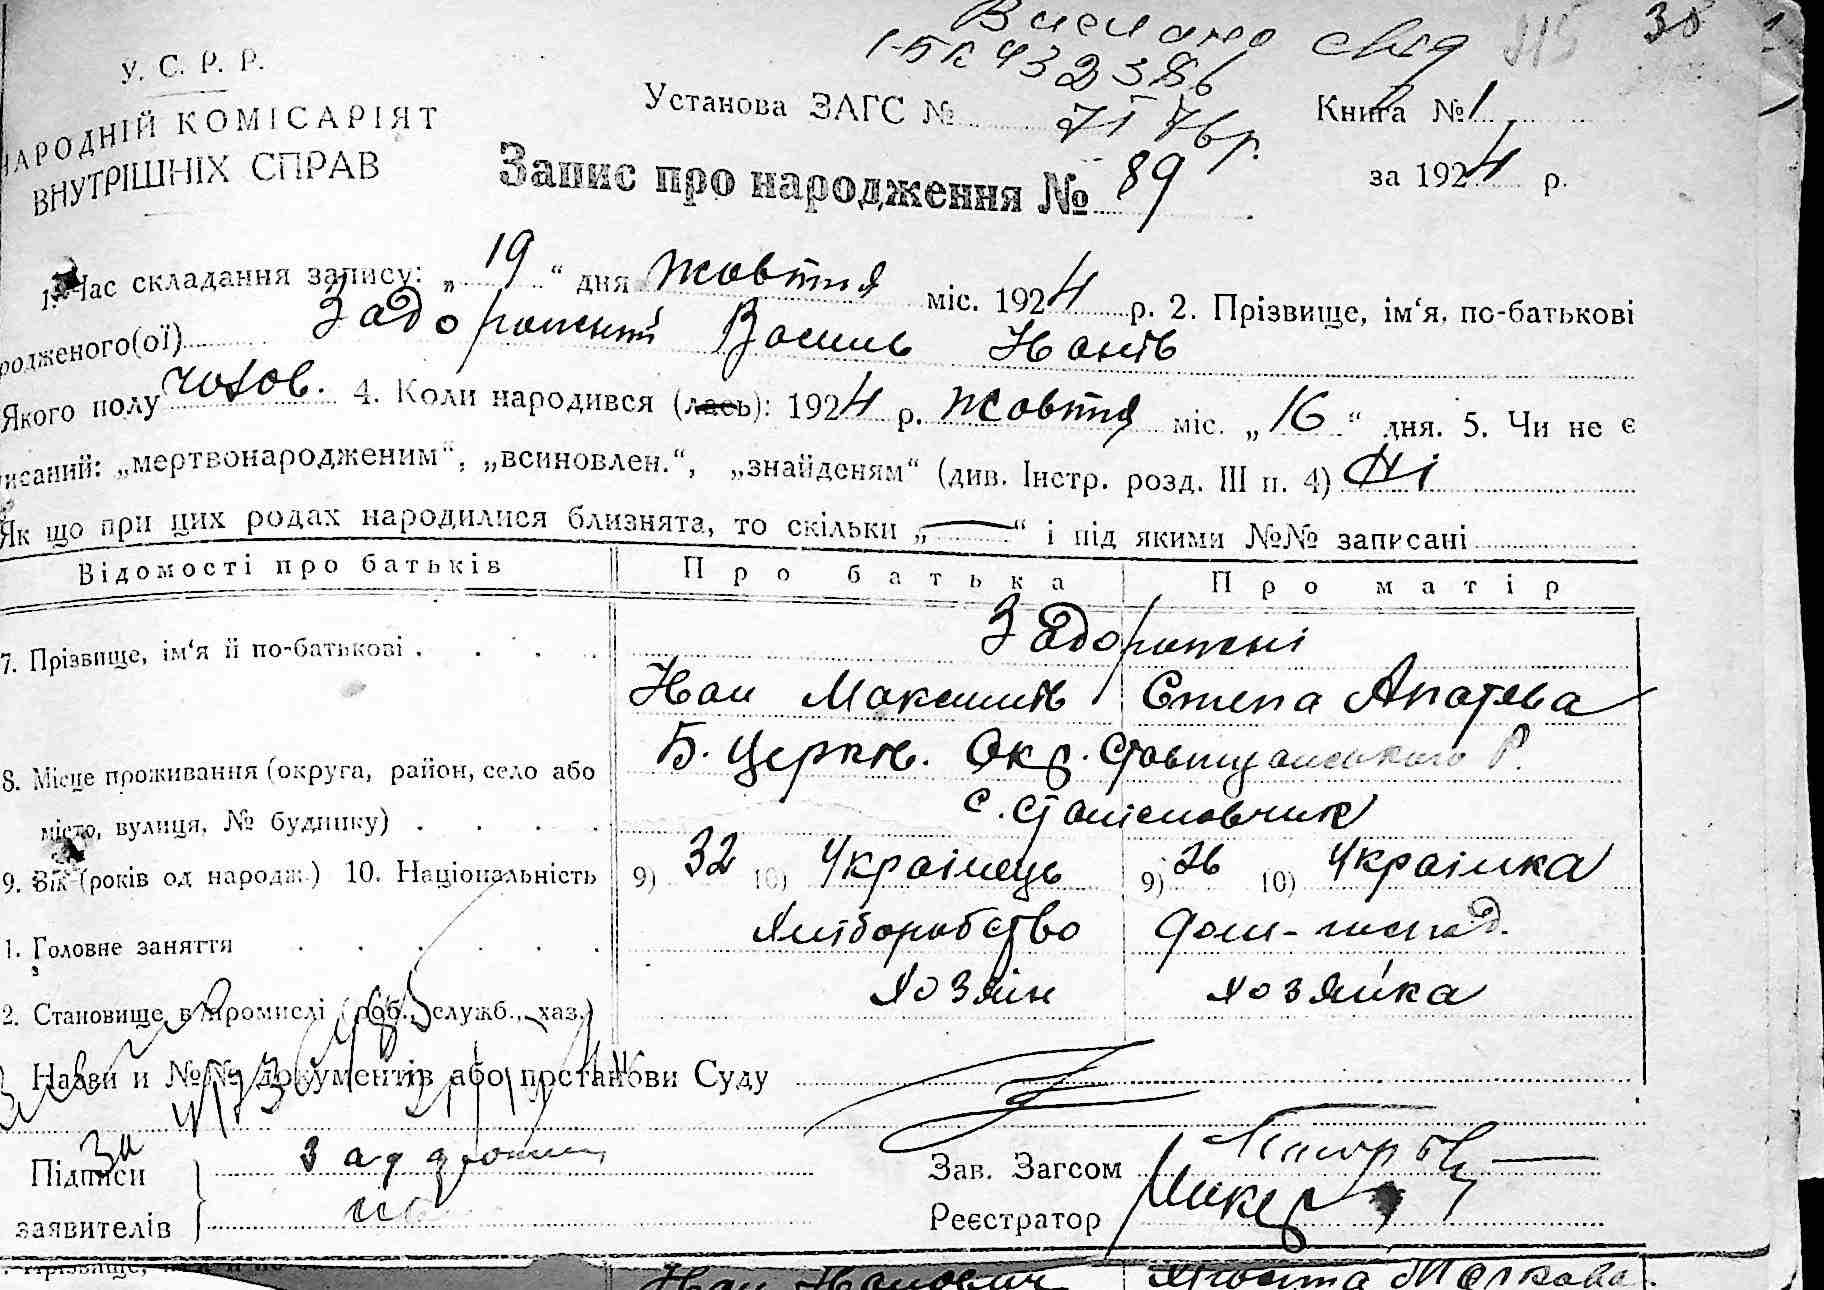 Вислано свід
115 38
І-БК 432386
У. С. Р. Р.
НАРОДНІЙ КОМІСАРІЯТ
ВНУТРІШНІХ СПРАВ
Установа ЗАГС №
Книга № 1
Запис про народження № 89
за 1924 р.
1. Час складання запису: „19“ дня жовтня міс. 1924 р. 2. Прізвище, ім‘я, по-батькові
родженого(ої) Задорожній Василь Іванів
Якого полу чолов. 4. Коли народився (лась): 1924 р. жовтня міс. „16“ дня. 5. Чи не є
писаний: „мертвонародженим“, „всиновлен.“, „знайденям“ (див. Інстр. розд. III п. 4) Ні
Як що при цих родах народилися близнята, то скільки „—“ і під якими №№ записані
Відомості про батьків Про батька Про матір
Задорожні
7. Прізвище, ім‘я й по-батькові
Іван Максимів Степа
8. Місце проживання (округа, район, село або Б. Церків. Окр. Ставищанського Р.
місто, вулиця, № будинку) с. Станіславчик
9. Вік (років од народж.) 10. Національність 9) 32 10) Українець 9) 26 10) Українка
1. Головне заняття Хліборобство дом-господ.
2. Становище в промислі (роб., служб., хаз.) хозяін хозяйка
Назви и №№ документів або постанови Суду
Підписи
заявителів
Зав. Загсом
Реєстратор
Іван Іванович